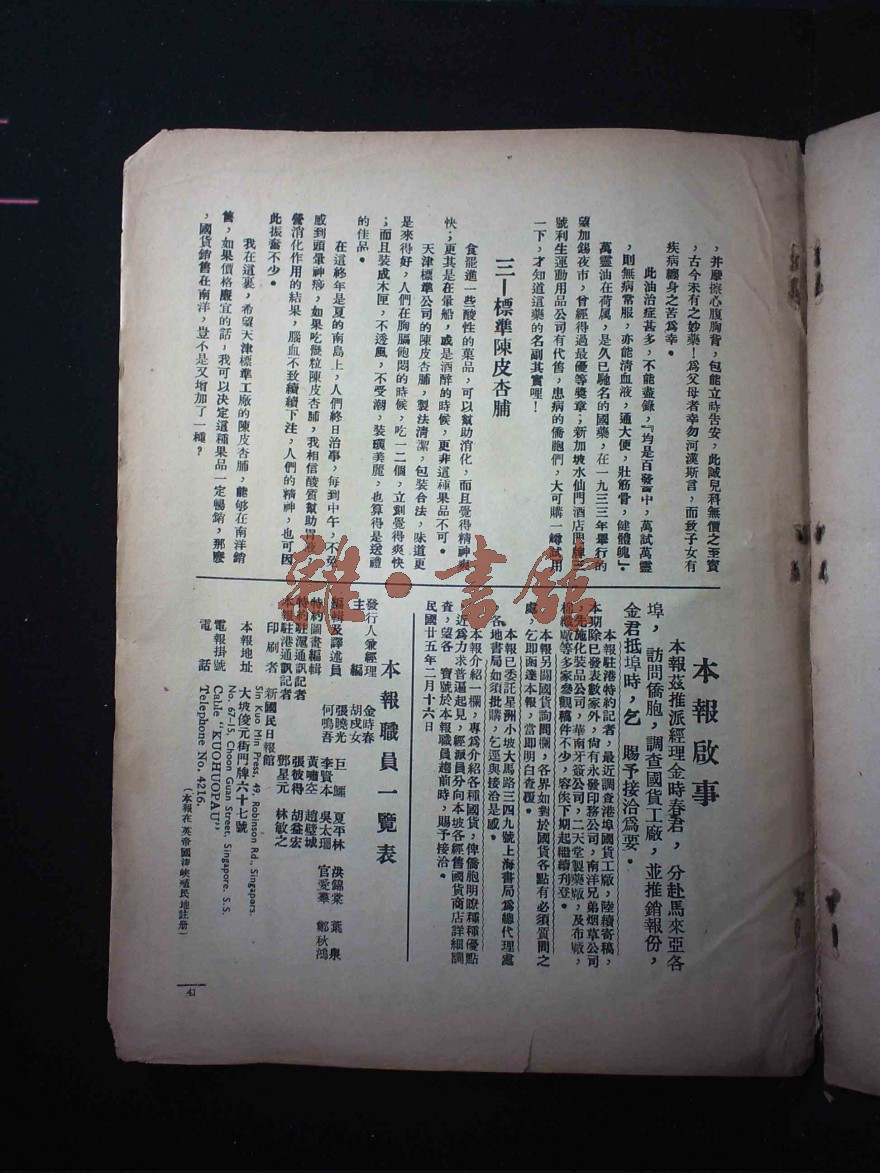 ，并摩擦心腹胸背，包能立時告安，此誠兒科無價之至寳
，古今未有之妙藥！爲父母者幸勿河漢斯言，而致子女有
疾病纏身之苦爲幸。
此油治症甚多，不能盡錄，『均是百發百中，萬試萬靈
，則無病常服，亦能清血液，通大便，壯筋骨，健體魄』。
萬靈油在荷属，是久已馳名的國藥，在一九三三年舉行的
望加錫夜市，曾經得過最優等獎章；新加坡水仙門酒店門牌三
號利生運動用品公司有代售，患病的僑胞們，大可購一罇試用
一下，才知道這藥的名副其實哩！
三—標準陳皮杏脯
食罷進一些酸性的菓品，可以幫助消化，而且覺得精神爽
快；更其是在暈船，或是酒醉的時候，更非這種果品不可。
天津標準公司的陳皮杏脯，製法清潔，包裝合法，味道更
是來得好，人們在胸膈飽悶的時候，吃一二個，立刻覺得爽快
；而且裝成木匣，不透風，不受潮，裝璜美麗，也算得是送禮
的佳品。
在這終年是夏的南島上，人們終日治事，每到中午，不免
感到頭暈神疲，如果吃幾粒陳皮杏脯，我相信酸質幫助胃液
營消化作用的結果，腦血不致續續下注，人們的精神，也可因
此振奮不少。
我在這裏，希望天津標準工廠的陳皮杏脯，能够在南洋銷
售，如果價格廉宜的話，我可以决定這種果品一定暢銷，那麽
，國貨銷售在南洋，豈不是又增加了一種？
本報啟事
本報茲推派經理金時春君，分赴馬來亞各
埠，訪問僑胞，調查國貨工廠，並推銷報份，
金君抵埠時，乞　賜予接洽爲要。
本報駐港特約記者，最近調查港埠國貨工廠，陸續寄稿，
本期除已發表數家外，尙有永發印務公司，南洋兄弟烟草公司
，先施化裝品公司，華南牙簽公司，二天堂製藥廠，及布廠，
棉織廠等多家參觀稿件不少，容俟下期起繼續刋登。
本報另闢國貨詢問欄，各界如對於國貨各點有必須質問之
處，乞即函達本報，當即明白查覆。
本報已委託星洲小坡大馬路三四九號上海書局爲總代理處
，各地書局如須批購，乞逕與接洽是感。
本報介紹一欄，專爲介紹各種國貨，俾僑胞明瞭種種優點
近爲力求普遍起見，經派員分向本坡各經售國貨商店詳細調
查，望各　寳號於本報職員趨前時，賜予接洽。
民國廿五年二月十六日
本報職員一覽表
發行人兼經理　金時春
主編　胡成女
編輯及譯述員　張曉光　巨鱷　夏平林　洪錦棠　葉泉
何鳴吾　李賢本　吳太瑠　官愛羣　鄭秋鴻
特約圖畫編輯　黃嘯空　趙壁城
特約駐滬通訊記者　張彼得　胡益宏
本報駐港通訊記者　鄧星元　林敏之
印刷者　新國民日報館
Sin Kuo Min Press, 49, Robinson Rd., Singapore.
本報地址　大坡俊元街門牌六十七號
No. 67-15, Choon Guan Street, Singapore, S.S.
電報掛號　Cable "KUOHUOPAU"
電話　Telephone No. 4216.
（本報在英帝國海峽殖民地註册）
41
雜·書館